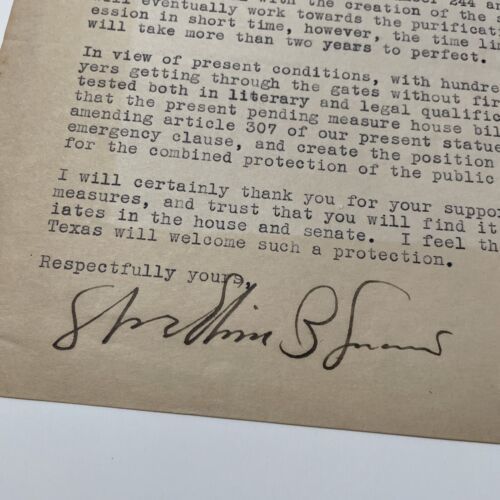 244 an
with the creation of the
will eventually work towards the purificati
ession in short time, however, the time li
will take more than two years to perfect.
In view of present conditions, with hundre
yers getting through the gates without fir
tested both in literary and legal qualific
that the present pending measure house bil
amending article 307 of our present statue
emergency clause, and create the position
for the combined protection of the public
I will certainly thank you for your suppor
measures, and trust that you will find it
iates in the house and senate. I feel th
Texas will welcome such a protection.
Respectfully yours,
B